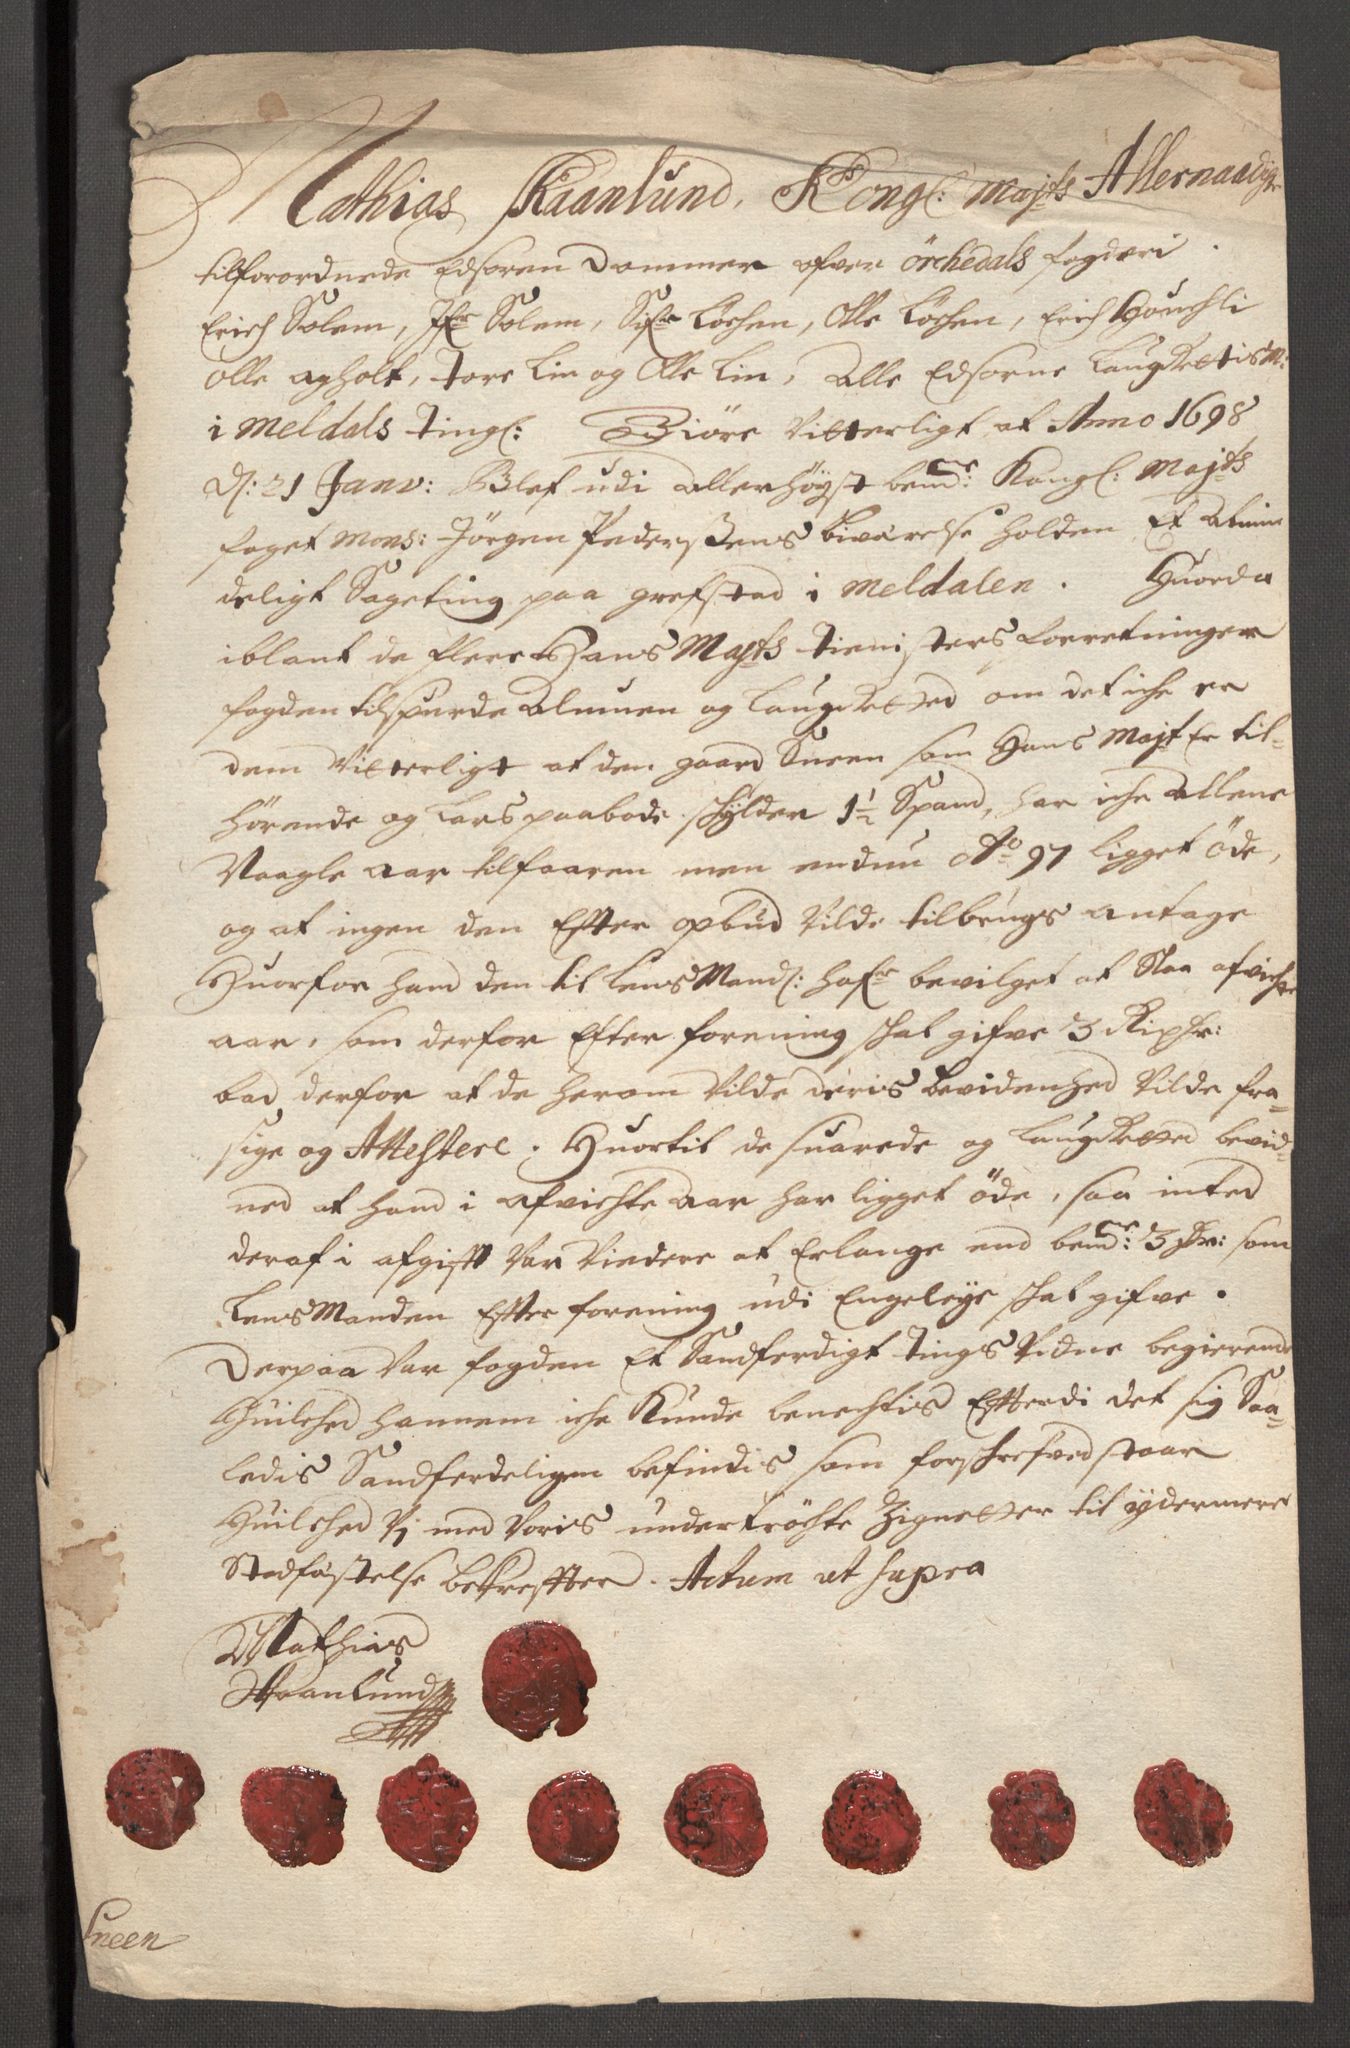 Mathias Skaanlund, Kongl: Majts Allernaadigst
tilforordnede Edsoren Dommer ofver örchedals fogderi
Erich Solem, Jfr Solem, Sifr Löchen, Olle Löchen, Erich
olle agholt, tore Lin og Olle Lin, alle Edsorne LaugRettisM:
i Meldals Tingl: Giöre Vitterligt at Anno 1698
d: 21 Janv: Blef udi allerhöyst bemde: Kongl: Majts
foget Mons: Jörgen Pederssens bivärelse holden Et almin
deligt Sageting paa grefstad i Meldalen. Huorda
iblant de flere Hans Majts tienisters forretninger
fogden tilspurde almuen og LaugRetted om det iche er
dem Vitterligt at den gaard Sneen som Hans Majt Er til-
hörende og Lars paabode schylder 1½ Spand, har iche allene
Nogle aar tilforen men endnu Ao 97 ligget öde,
og at ingen den Efter opbud Vilde tilbrugs antage
Huorfor hand den til LensMand: hafr bevilget at Slaa afvichte
aar, som derfor Efter forening schal gifve 3
bad derfor at de herom Vilde deris bevidenhed Vilde fra-
sige og Attestere. Huortil de suarede og LaugRetted bevid-
ned at hand i afvichte aar har ligget öde, saa inted
deraf i afgift Var Videre at Erlange end bemde: 3 som
LensManden Efter forening udi Engeleye schal gifve.
Derpaa Var fogden Et Sandferdigt Tings Vidne begierende
Huilched hannem iche Kunde benechtis Efterdi det sig Saa-
ledis Sandferdeligen befindis som forschrefved staar
Huilched Vj med Voris undertröchte Zignetter til ydermere
Stadfästelse bekreffter. Actum ut supra
Mathias
Skaanlund
Sneen